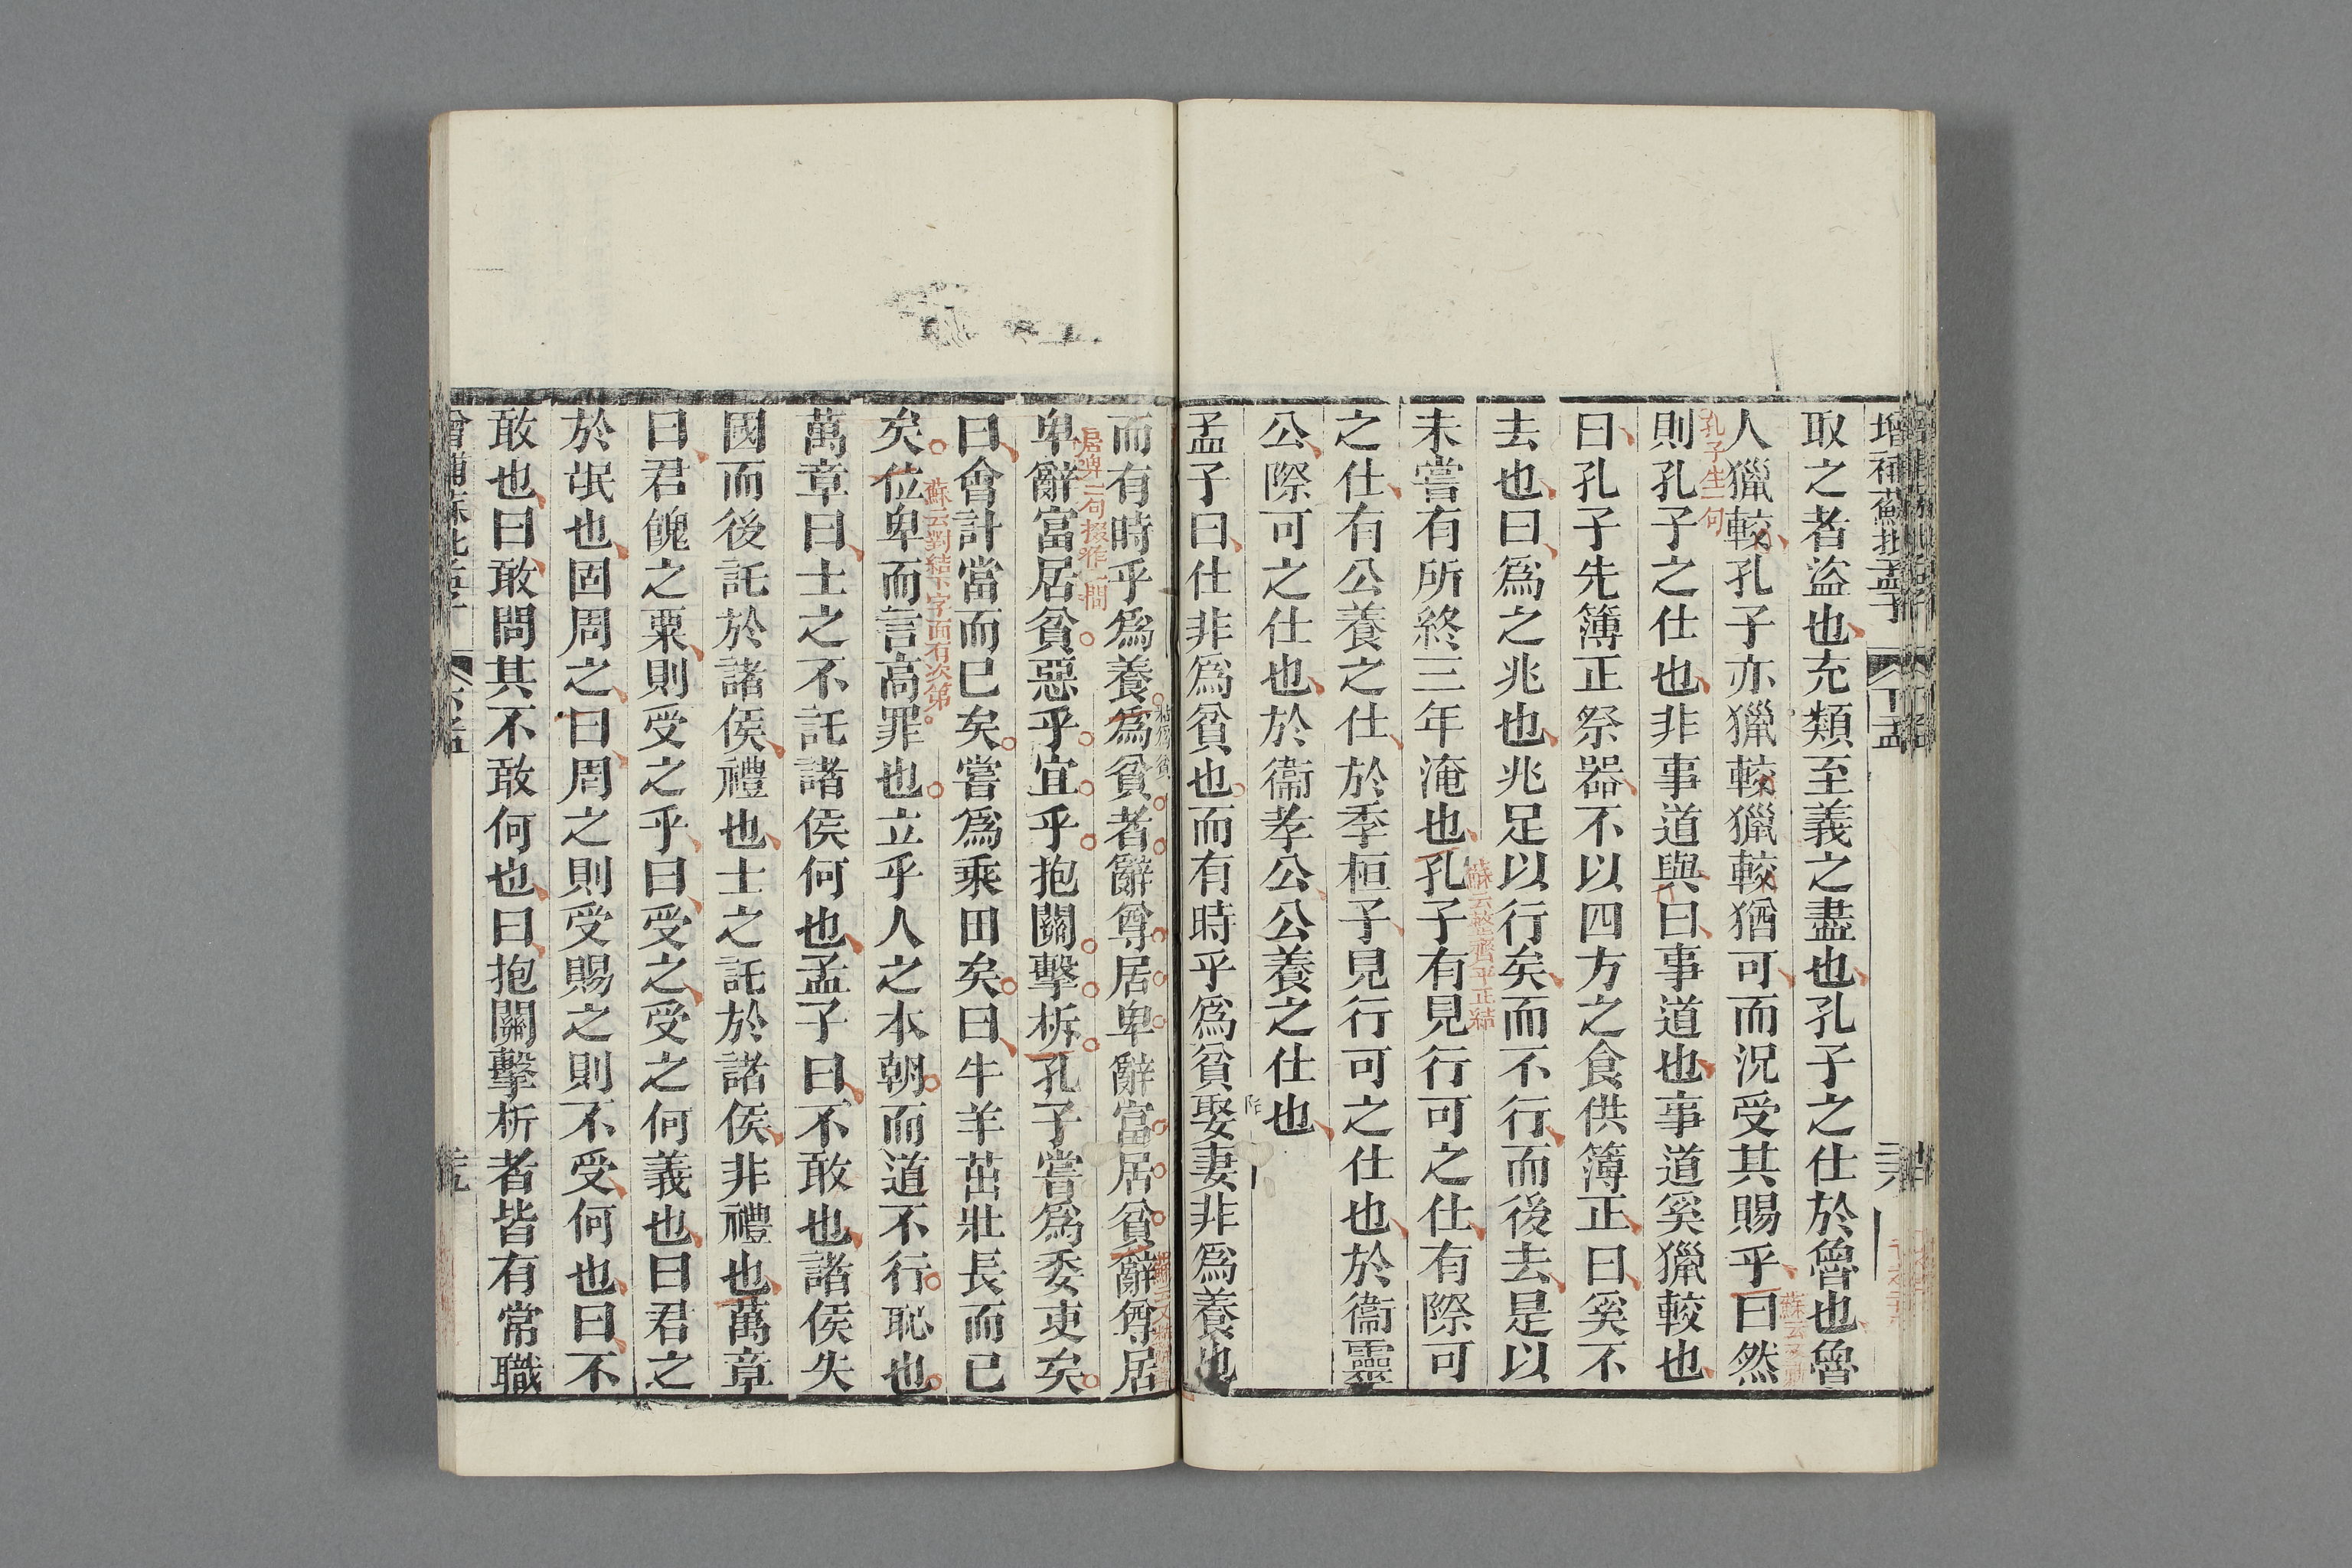 增補蘇批孟子
下孟
取之者盜也充類至義之盡也孔子之仕於魯也魯
人獵較孔子亦獵較獵較猶可而況受其賜乎曰然
孔子生一句
則孔子之仕也非事道與曰事道也事道奚獵較也
曰孔子先簿正祭器不以四方之食供簿正曰奚不
去也曰爲之兆也兆足以行矣而不行而後去是以
蘇云整齊平正結
未嘗有所終三年淹也孔子有見行可之仕有際可
之仕有公養之仕於季桓子見行可之仕也於衞靈
公際可之仕也於衞孝公公養之仕也
孟子曰仕非爲貧也而有時乎爲貧娶妻非爲養也
而有時乎爲養爲貧者辭尊居卑辭富居貧辭尊居
卑辭富居貧惡乎宜乎抱關擊柝孔子嘗爲委吏矣
曰會計當而已矣嘗爲乘田矣曰牛羊茁壯長而已
蘇云對結下字面有次第
矣位卑而言高罪也立乎人之本朝而道不行恥也
萬章曰士之不託諸侯何也孟子曰不敢也諸侯失
國而後託於諸侯禮也士之託於諸侯非禮也萬章
曰君餽之粟則受之乎曰受之受之何義也曰君之
於氓也固周之曰周之則受賜之則不受何也曰不
敢也曰敢問其不敢何也曰抱關擊柝者皆有常職